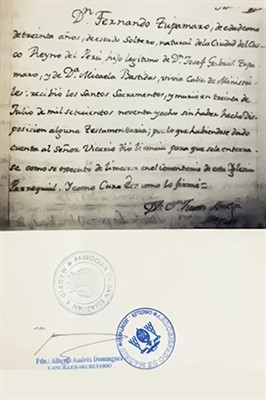 Dn. Fernando Tupamaro, de edad como
de treinta años, de estado Soltero, natural de la Ciudad del Cus-
co Reyno del Perú hijo legitimo de Dn. Josef Gabriel Tupa
maro, y de Da. Micaela Bastidas, vivia Calle de Ministri-
les: recibió los Santos Sacramentos, y murió en treinta de
Julio de mil setecientos noventa y ocho sin haber hecho dis-
posicion alguna Testamentaria; por lo que habiendose dado
cuenta al Señor Vicario dió licencia para que se le enterra-
se como se executó de limosna en el Cementerio de esta Iglesia
Parroquial. Y como Cura lo firmé
PARROQUIA DE SAN SEBASTIAN
MADRID
ARZOBISPADO DE MADRID
Fdo.: Alberto Andrés Domínguez
CANCILLER-SECRETARIO